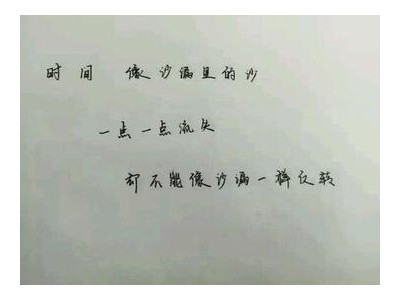 时间 像沙漏里的沙
一点一点流失
却不能像沙漏一样反转